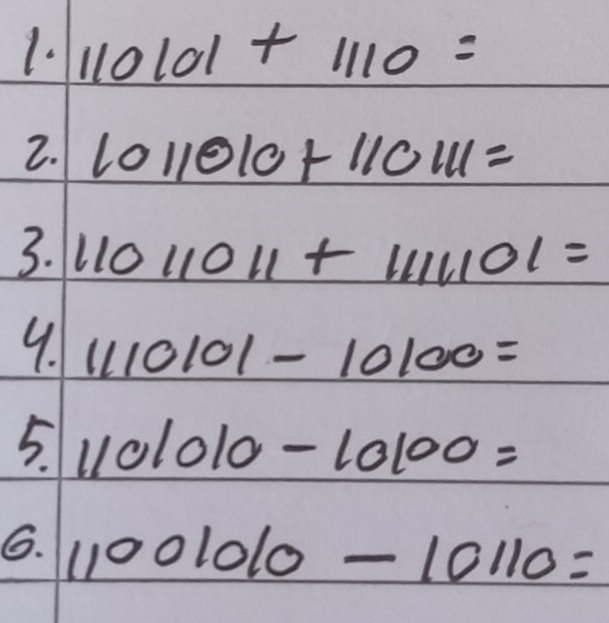 1. 110101 + 1110 =
2. 1011010 + 110111 =
3. 11011011 + 11111101 =
4. 1110101 - 10100 =
5. 1101010 - 10100 =
6. 11001010 - 10110 =